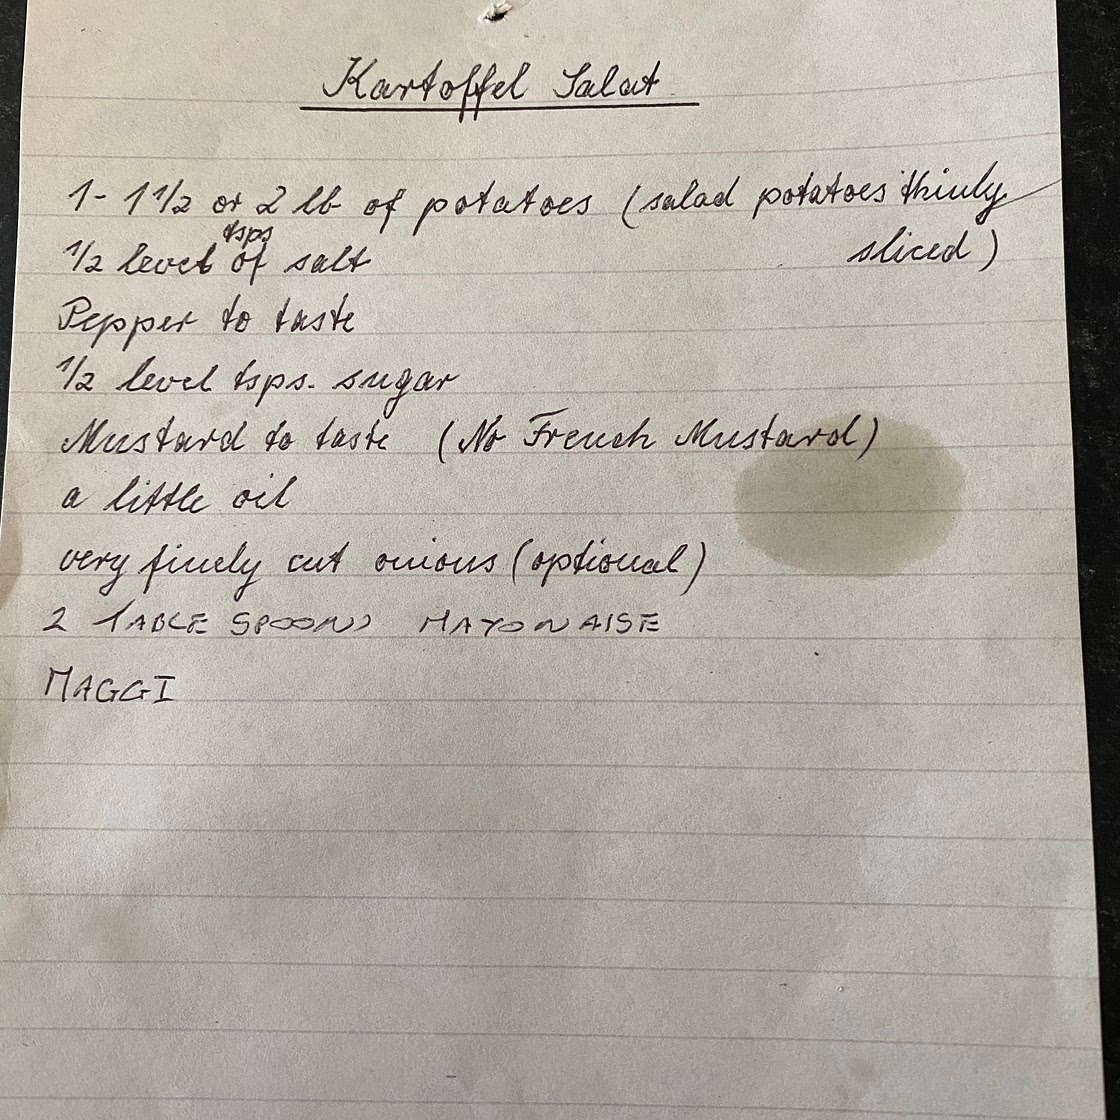 Kartoffel Salat
1- 1 1/2 or 2 lb of potatoes (salad potatoes thinly
sliced)
tsps
1/2 level of salt
Pepper to taste
1/2 level tsps. sugar
Mustard to taste (No French Mustard)
a little oil
very finely cut onions (optional)
2 TABLE SPOONS MAYONAISE
MAGGI